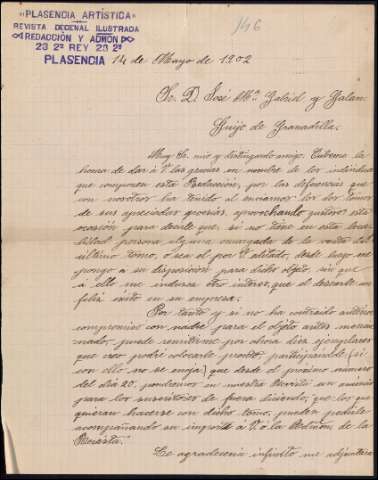 «PLASENCIA ARTÍSTICA»
REVISTA DECENAL ILUSTRADA
REDACCIÓN Y ADMÓN
23 2º REY 23 2º
PLASENCIA
146
14 de Mayo de 1902
Sr. D. José Mª Gabriel y Galan.
Guijo de Granadilla.
Muy Sr. mio y distinguido amigo: Cábeme la
honra de dar á V. las gracias en nombre de los individuos
que componen esta Redacción, por las deferencias que
con nosotros ha tenido al enviarnos los dos tomos
de sus apreciadas poesías, aprovechando gustoso esta
ocasión para decirle que, si no tiene en esta loca-
lidad persona alguna encargada de la venta del
último tomo, ó sea el por V. editado, desde luego me
pongo a su disposición para dicho objeto sin que
a ello me induzca otro interés, que el desearle un
feliz éxito en su empresa.
Por tanto y si no ha contraido anterior
compromiso con nadie para el objeto antes mencio-
nado, puede remitirme por ahora diez ejemplares
que creo podré colocarle pronto, participándole (si
con ello no se enoja) que desde el próximo número
del día 20, pondremos en nuestra Revista un anuncio
para los suscritores de fuera diciendo, que los que
quieran hacerse con dicho tomo, pueden pedirle
acompañando su importe á V. ó la Admón de la
Revista.
Le agradecería infinito me adjuntara